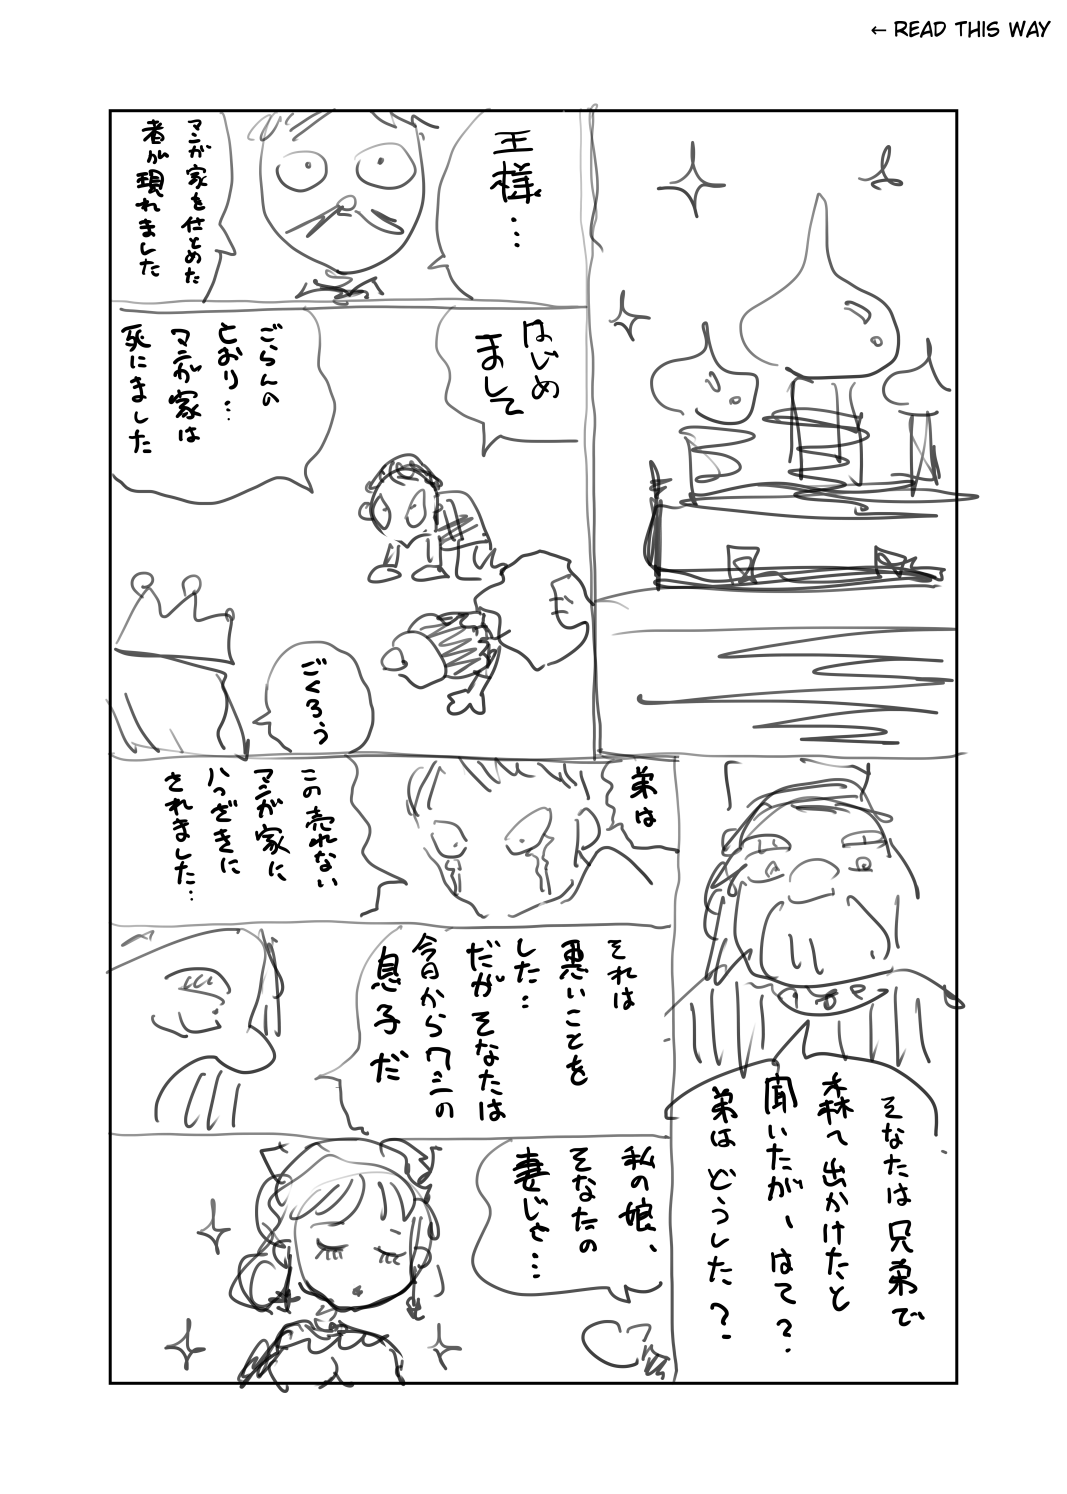 ← READ THIS WAY
王様…
マンガ家を仕とめた
者が現れました
はじめ
まして
ごらんの
とおり…
マンガ家は
死にました
ごくろう
そなたは兄弟で
森へ出かけたと
聞いたが、はて?
弟はどうした?
弟は
この売れない
マンガ家に、
八つざきに
されました…
それは
悪いことを
した…
だがそなたは
今日からワシの
息子だ
私の娘、
そなたの
妻じゃ…